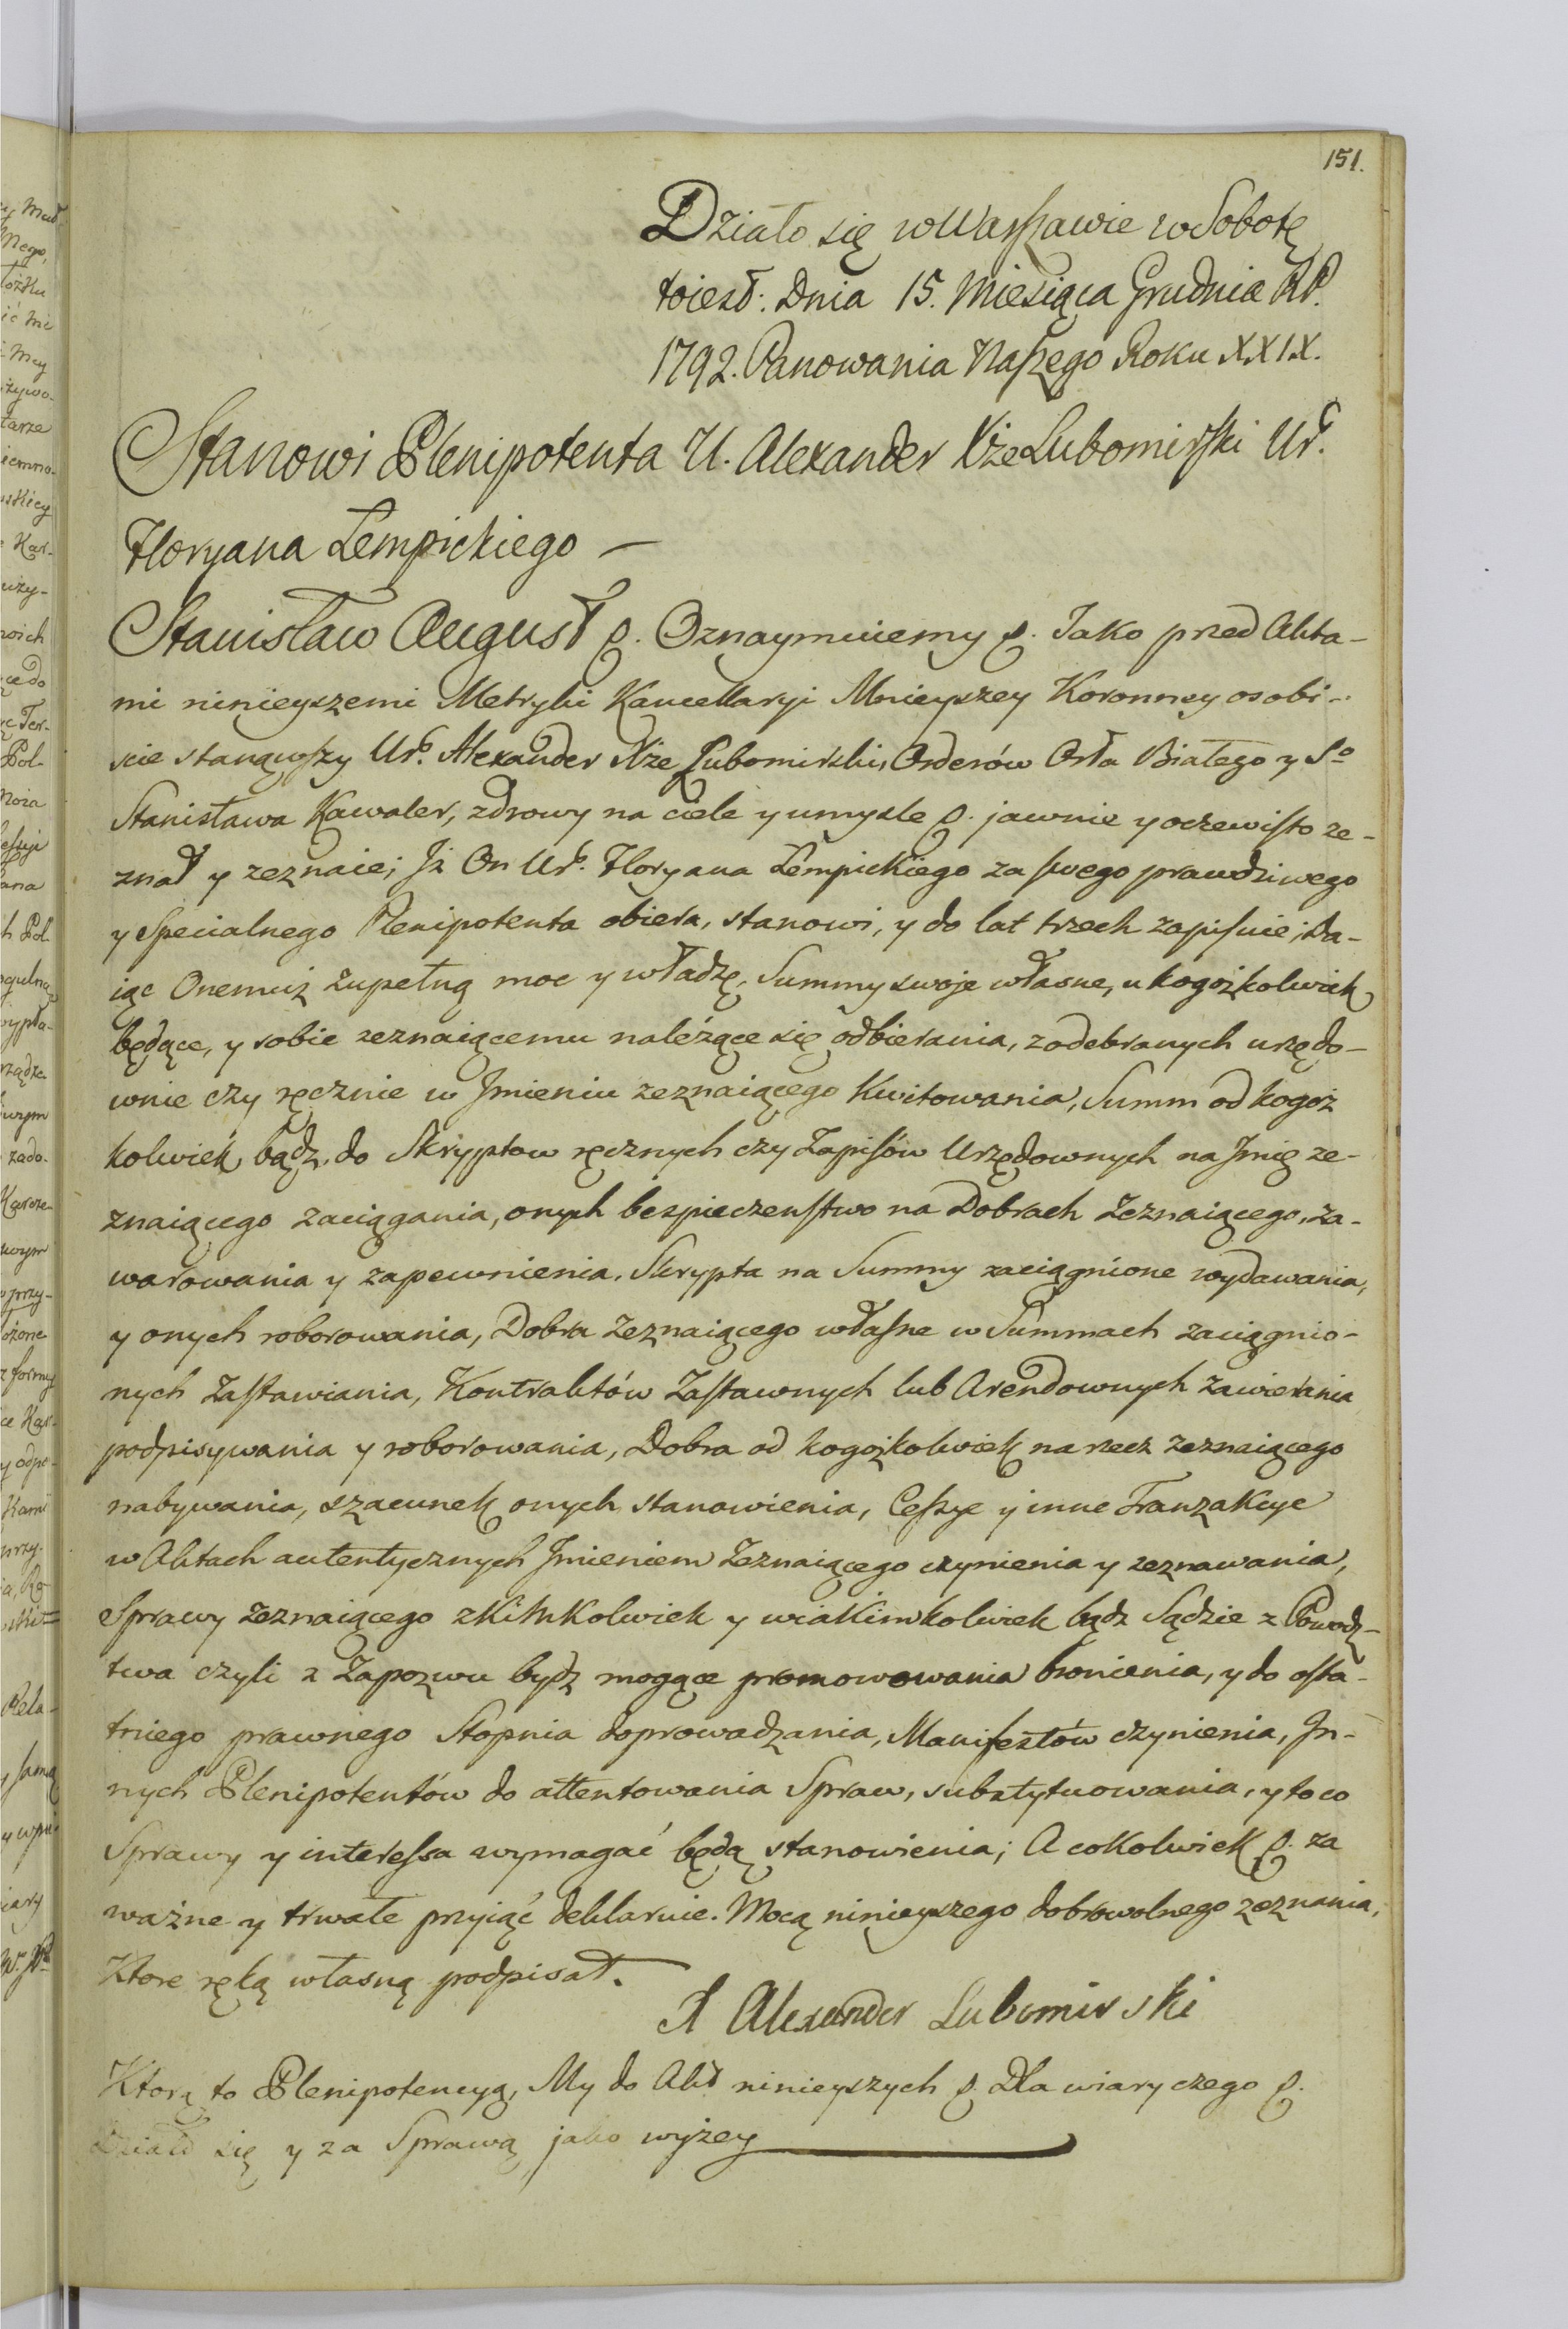 151.
Działo się w Warszawie w Sobotę
to iest: Dnia 15. Miesiąca Grudnia R.P.
1792. Panowania Naszego Roku XXIX.
Stanowi Plenipotenta U. Alexander Xże Lubomirski Ur.
Floryana Łempickiego —
Stanisław August p. Oznaymuiemy p. Jako przed Akta-
mi ninieyszemi Metryki Kancellaryi Mnieyszey Koronney osobi-
ście stanąwszy Ur. Alexander Xże Lubomirski, Orderów Orła Białego y So
Stanisława Kawaler, zdrowy na ciele y umysle p. jawnie y oczewisto ze-
znał y zeznaie; Jż On Ur. Floryana Łempickiego za swego prawdziwego
y specialnego Plenipotenta obiera, stanowi, y do lat trzech zapisuie; Da-
iąc Onemuż zupełną moc y władzę, Summy swoje własne, u kogożkolwiek
będące, y sobie zeznaiącemu należące się odbierania, z odebranych urzędo-
wnie czy ręcznie w Jmieniu zeznaiącego Kwitowania, Summ od kogoż
kolwiek bądź, do Skryptow ręcznych czy Zapisów Urzędownych na Jmię ze-
znaiącego zaciągania, onych bezpieczenstwo na Dobrach Zeznaiącego, za-
warowania y zapewnienia, Skrypta na Summy zaciągnione wydawania,
y onych roborowania, Dobra Zeznaiącego własne w Summach zaciągnio-
nych Zastawiania, Kontraktów Zastawnych lub Arendownych zawierania
podpisywania y roborowania, Dobra od kogożkolwiek na rzecz zeznaiącego
nabywania, szacunek onych stanowienia, Cessye y inne Tranzakcye
w Aktach autentycznych Jmieniem Zeznaiącego czynienia y zeznawania,
Sprawy Zeznaiącego z kimkolwiek y w iakimkolwiek bądz Sądzie z Powodz-
twa czyli z Zapozwu bydz mogące promowowania bronienia, y do osta-
tniego prawnego Stopnia doprowadzania, Manifestów czynienia, Jn-
nych Plenipotentów do attentowania Spraw, substytuowania, y to co
Sprawy y interessa wymagać będą stanowienia; A cokolwiek p. za
ważne y trwałe przyiąć deklaruie. Mocą ninieyszego dobrowolnego zeznania,
Ktore ręką własną podpisał.
X Alexander Lubomirski
Ktorą to Plenipotencyą, My do Akt ninieyszych p. Dla wiary czego p.
Działo się y za Sprawą jako wyżey